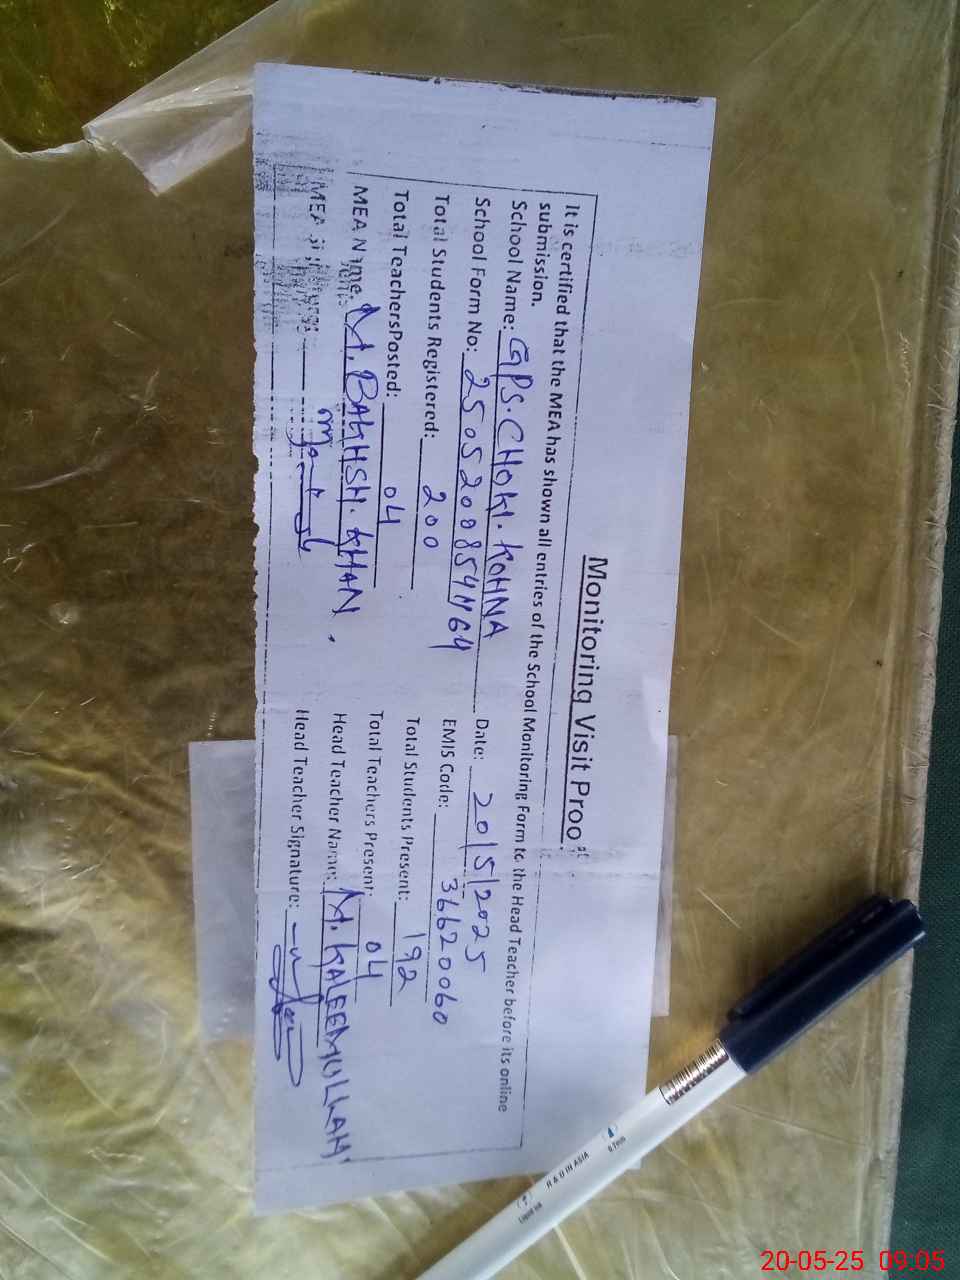 Monitoring Visit Proof
It is certified that the MEA has shown all entries of the School Monitoring Form to the Head Teacher before its online
submission.
School Name: GPS. CHOKI. KOHNA
School Form No: 25052008544464 Date: 20/5/2025
Total Students Registered: 200 EMIS Code: 36620060
Total TeachersPosted: 04 Total Students Present: 192
MEA Name: M. BAKHSH. KHAN. Total Teachers Present: 04
Head Teacher Name: M. KALEEMULLAH
MEA Head Teacher Signature:
R & U IN ASIA
0.7mm
LIQUID INK
20-05-25 09:05